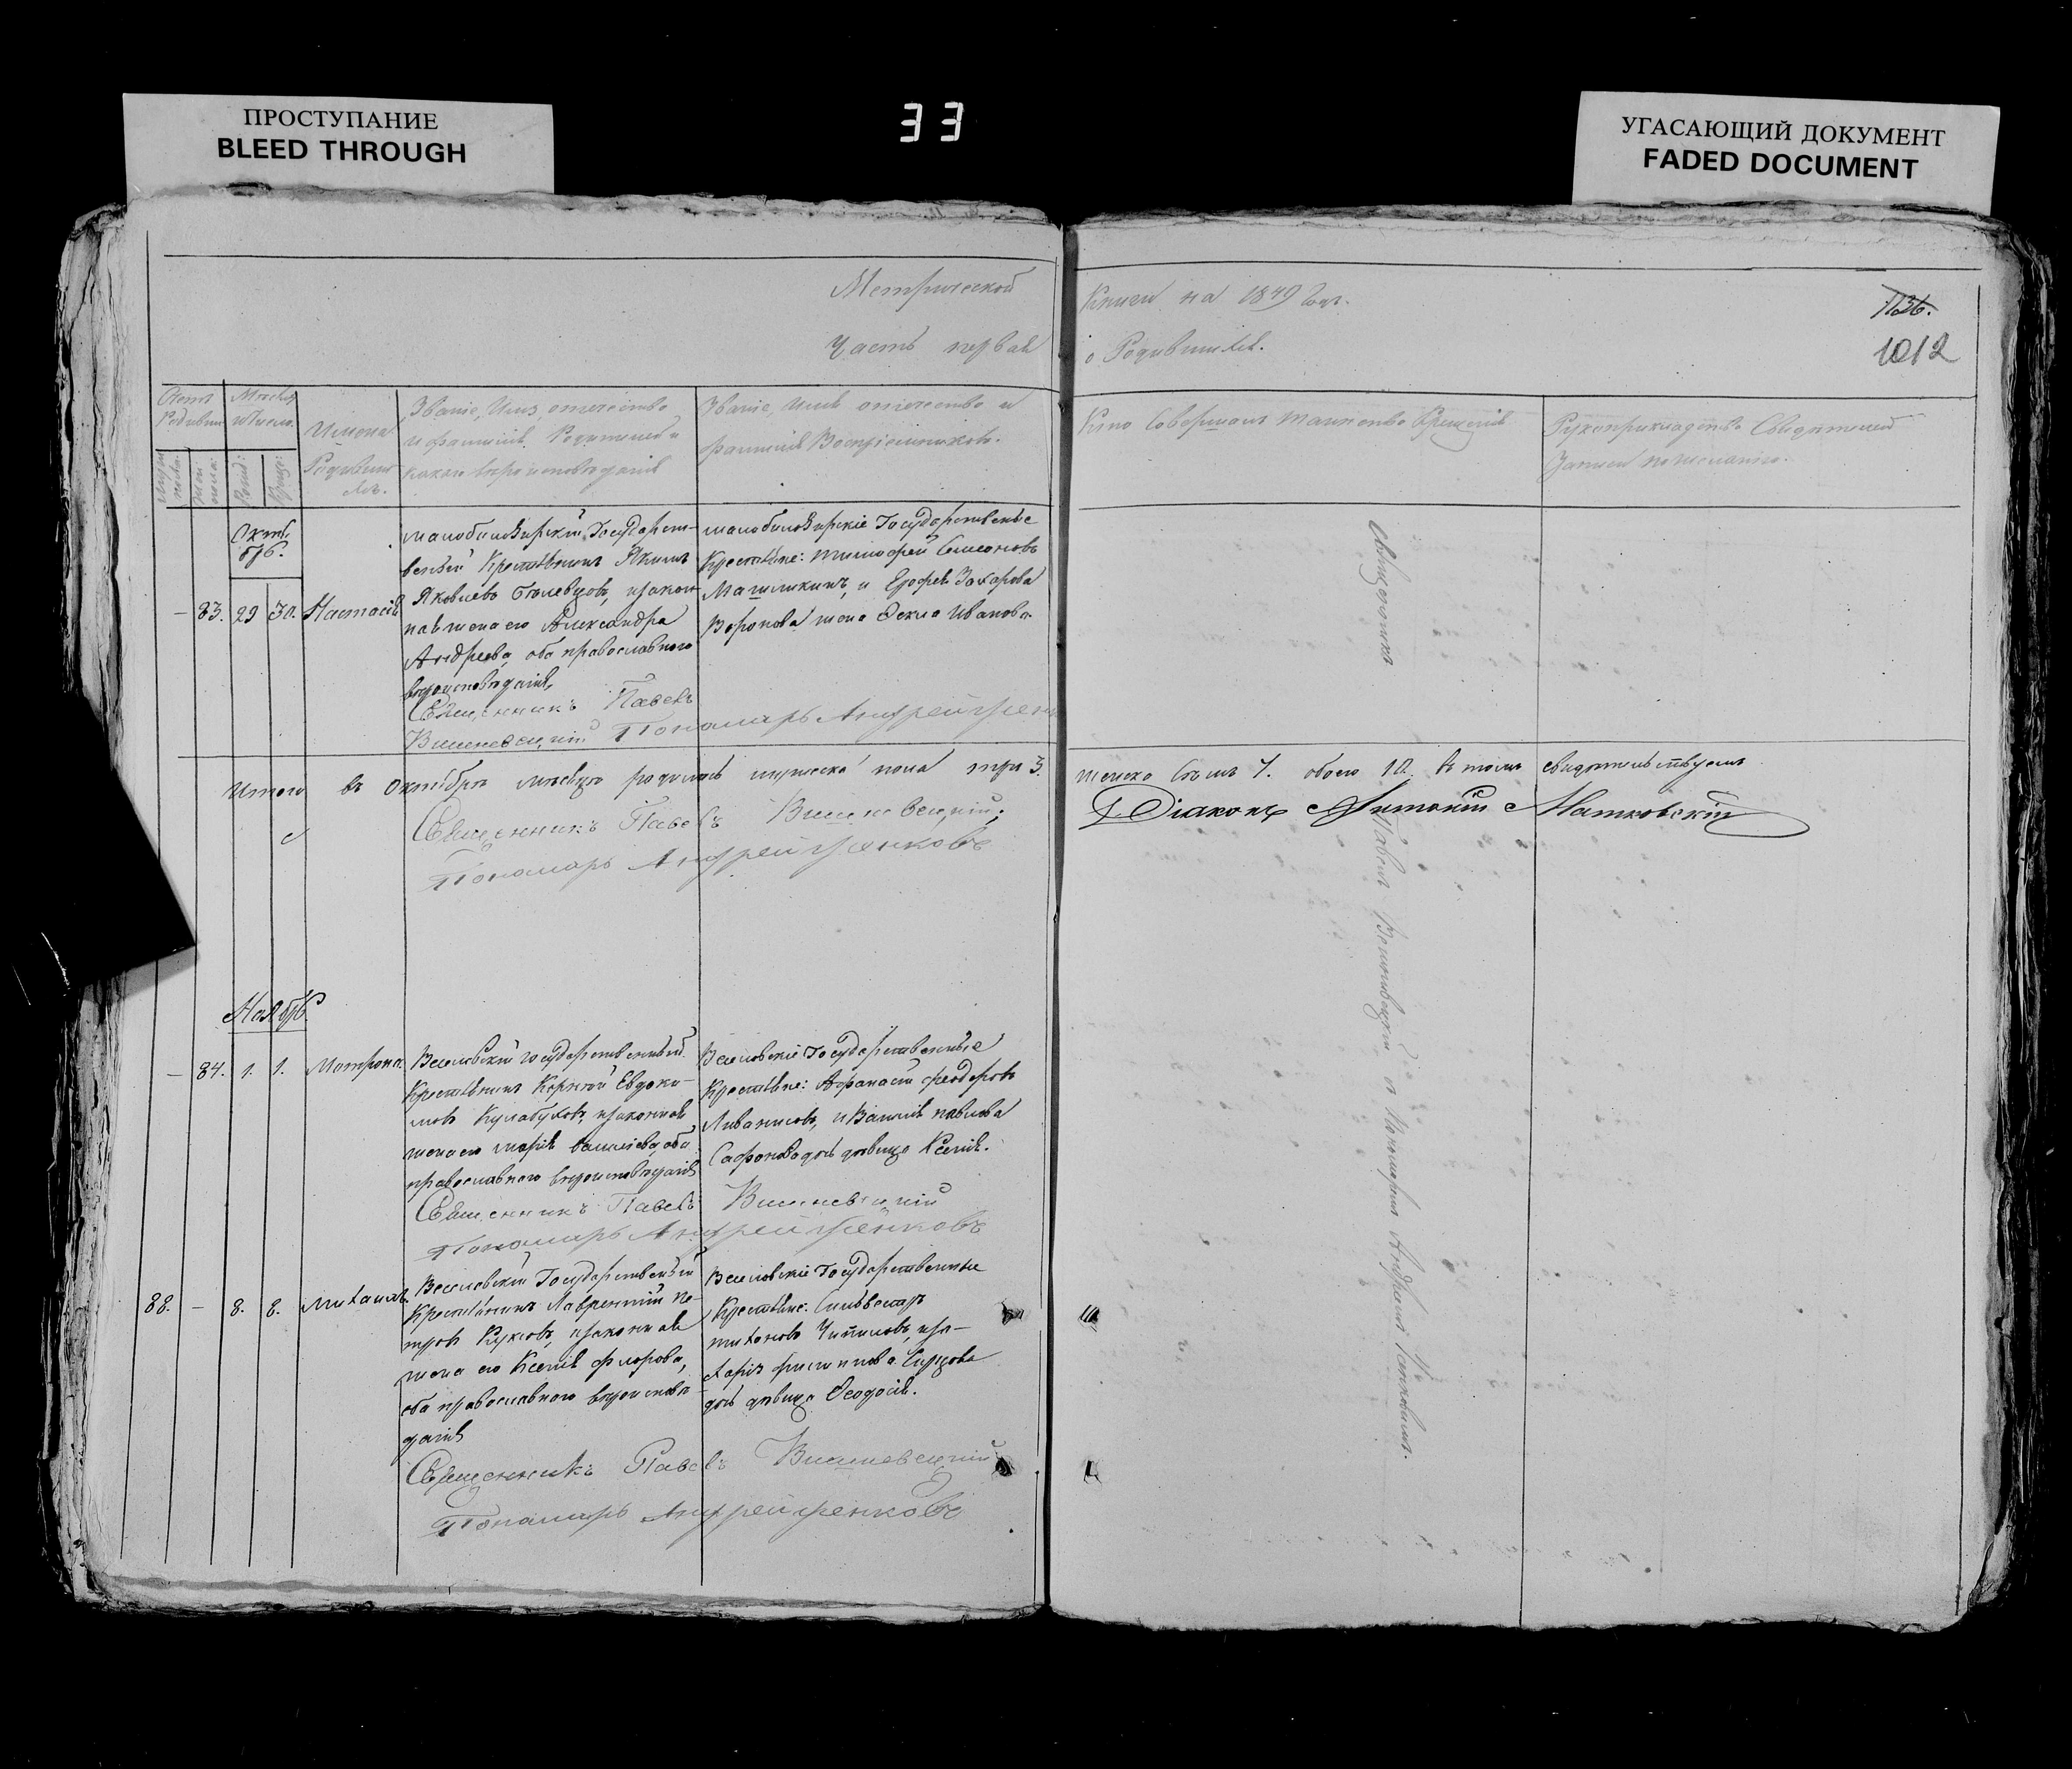 ПРОСТУПАНИЕ
BLEED THROUGH
33
УГАСАЮЩИЙ ДОКУМЕНТ
FADED DOCUMENT
Метрической
Часть первая
Книги на 1849 годъ.
о Родившихся.
1136.
1012
Счетъ Родивш.
Мѣсяцъ и число.
Имена Родивших ся.
Званіе, Имя, отечество
и фамилія Родителей и
какого вѣроисповѣданія
Званіе, имя отечество и
фамилія Воспріемниковъ.
Кто Совершалъ таинство Крещенія
Рукоприкладство Свидѣтелей
Записи по желанію.
Октя
брь.
– 83. 29 30. Настасія
Государст-
венный Крестьянинъ Якимъ
Яковлевъ законъ
ная жена его Александра
Андреева, оба православнаго
вѣроисповѣданія,
Священникъ Павелъ
Вишневецкій Пономарь Андрей
Государственные
Крестьяне: Тимофей Симеоновъ
и Ерофея Захарова
Воронова жена Фекла Иванова.
Священникъ
Итого въ Октябрѣ мѣсяцѣ родилось мужеска пола три 3.
женска семь 7. обоего 10. въ томъ свидѣтельствуемъ
Священникъ Павелъ Вишневецкій;
Пономарь Андрей
Діаконъ Антоній Матковскій
Павелъ Вишневецкій с Пономаремъ Андреемъ
Ноябрь
– 84. 1. 1. Матрона.
Веселовскій государственный
Крестьянинъ Корнѣй Евдоки-
мовъ Кулабуховъ, законная
жена его Марія Васильева, оба
православнаго вѣроисповѣданія
Священникъ Павелъ Вишневецкій
Пономарь Андрей
Веселовскіе Государственные
Крестьяне: Афанасій Феодоровъ
и Василія Павлова
Сафонова дочь дѣвица Ксенія.
88. – 8. 8. Михаилъ.
Веселовскій Государственный
Крестьянинъ Лаврентій Пе-
тровъ законная
жена его Ксенія Флорова,
оба православнаго вѣроисповѣ-
данія
Священникъ Павелъ Вишневецкій
Пономарь Андрей
Веселовскіе Государственные
Крестьяне: Сильвестръ
Тихоновъ и За-
харія Филипова
дочь дѣвица Феодосія.